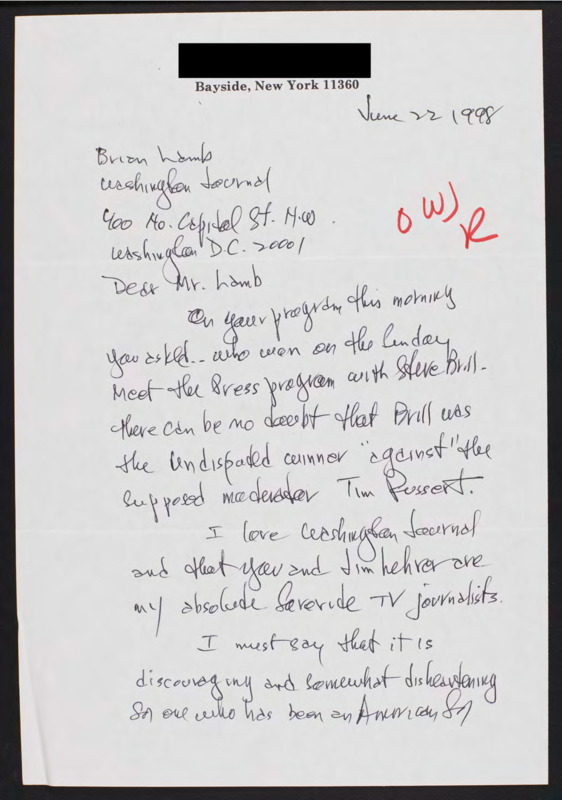 Bayside, New York 11360
June 22 1998
Brian Lamb
Washington Journal
400 No. Capitol St. N.W.
Washington D.C. 20001
O WJ
R
Dear Mr. Lamb
On your program this morning
you asked.. who won on the Sunday
Meet the Press program with Steve Brill-
there can be no doubt that Brill was
the undisputed winner "against" the
supposed moderator Tim Russert.
I love Washington Journal
and that you and Jim Lehrer are
my absolute favorite TV journalists.
I must say that it is
discouraging and somewhat disheartening
for one who has been an American for